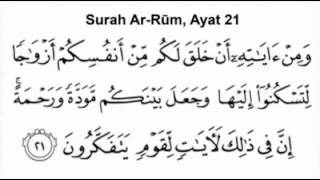 Surah Ar-Rūm, Ayat 21
وَمِنْ ءَايَـٰتِهِۦٓ أَنْ خَلَقَ لَكُم مِّنْ أَنفُسِكُمْ أَزْوَٰجًا
لِّتَسْكُنُوٓا۟ إِلَيْهَا وَجَعَلَ بَيْنَكُم مَّوَدَّةً وَرَحْمَةً ۚ
إِنَّ فِى ذَٰلِكَ لَـَٔايَـٰتٍ لِّقَوْمٍ يَتَفَكَّرُونَ ٢١